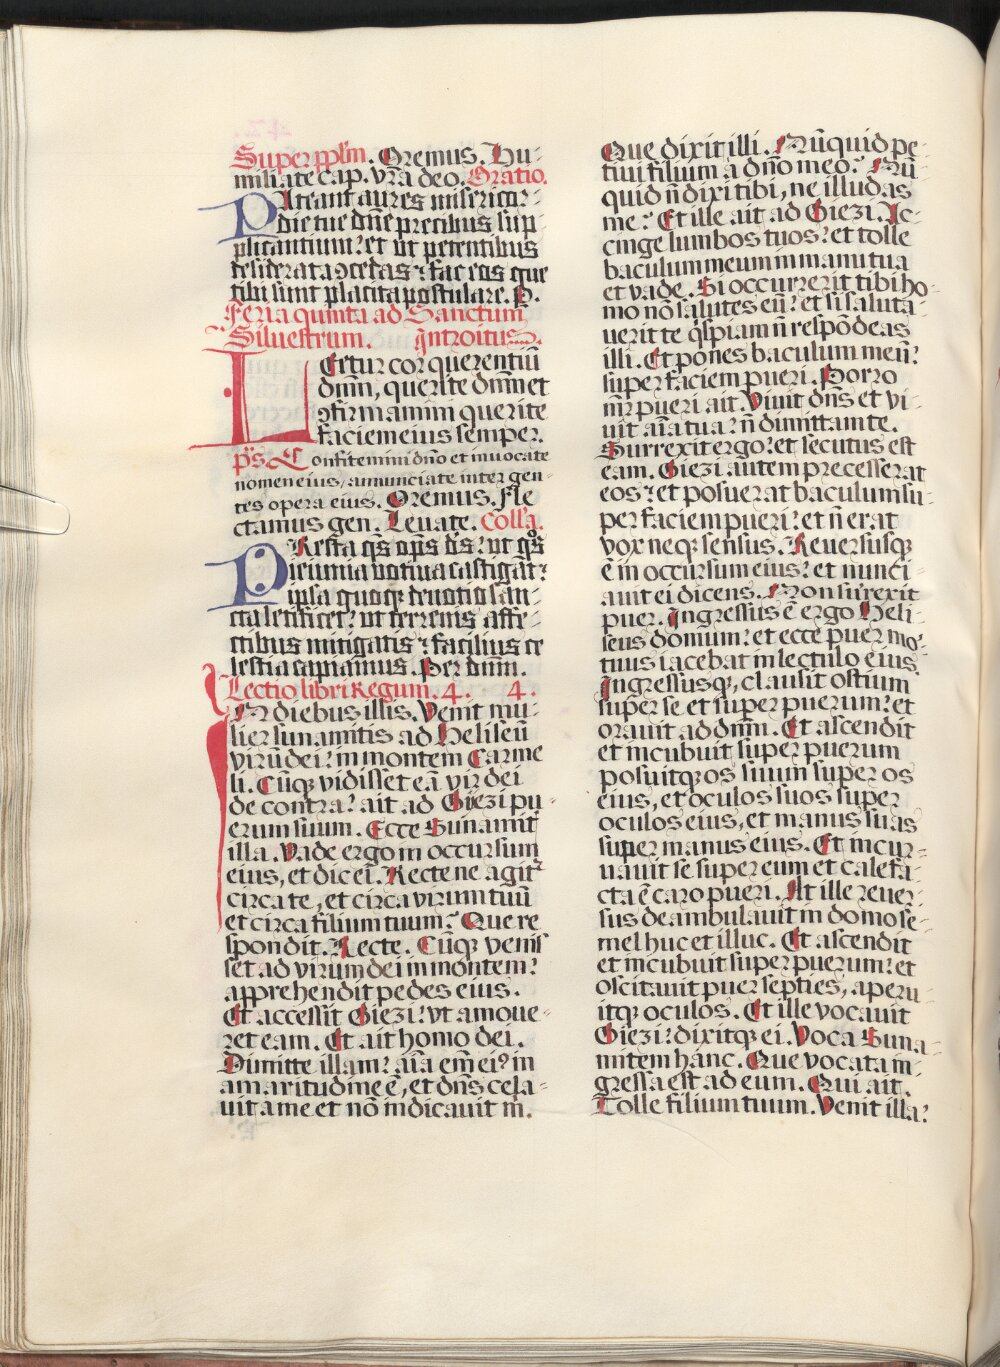 Super pplm̄. Oremus. Hu-
miliate cap. vr̄a deo. Oratio.
PAteant aures misericor-
die tue dn̄e precibus sup-
plicantium: et ut petentibus
desiderata ꝯcedas: fac eos que
tibi sunt placita postulare. P.
Feria quinta ad Sanctum
Siluestrum. Introitus.
LEtetur cor querentiū
dnm̄, querite dnm̄ et
ꝯfirmamini querite
faciem eius semper.
ps̄ Confitemini dn̄o et inuocate
nomen eius, annunciate inter gen-
tes opera eius. Oremus. Fle
ctamus gen. Leuate. Coll'a.
PResta qs̄ op̄s ds̄: ut qͦs
ieiunia uotiua castigāt:
ipsa quoqꝫ deuotio san-
cta letificet: ut terrenis affe-
ctibus mitigatis: facilius ce
lestia capiamus. Per dnm̄.
Lectio libri Regum. 4. 4.
IN diebus illis. Venit mu-
lier sunamitis ad Heliseū
virū dei: in montem Carme
li. Cūqꝫ vidisset eā vir dei
de contra: ait ad Giezi pu-
erum suum. Ecce Sunamit
illa. Vade ergo in occursum
eius, et dic ei. Recte ne agit
circa te, et circa virum tuū
et circa filium tuum? Que re
spondit. Recte. Cūqꝫ venis
set ad virum dei in montem:
apprehendit pedes eius.
Et accessit Giezi: vt amoue-
ret eam. Et ait homo dei.
Dimitte illam: aīa em̄ ei? in
amaritudine ē, et dn̄s cela-
uit a me et nō indicauit m̄.
Que dixit illi. Nūquid pe-
tiui filium a dn̄o meo? Nū
quid n̄ dixi tibi, ne illudas
me? Et ille ait ad Giezi. Ac-
cinge lumbos tuos: et tolle
baculum meum in manu tua
et vade. Si occurrerit tibi ho-
mo nō salutes eū: et si saluta-
uerit te qͥspiam n̄ respōdeas
illi. Et pones baculum meū:
super faciem pueri. Porro
mr̄ pueri ait. Viuit dn̄s et vi-
uit aīa tua: n̄ dimittam te.
Surrexit ergo: et secutus est
eam. Giezi autem precesserat
eos: et posuerat baculum su-
per faciem pueri: et n̄ erat
vox neqꝫ sensus. Reuersusqꝫ
ē in occursum eius: et nunci-
auit ei dicens. Non surrexit
puer. Ingressus ē ergo Heli-
seus domum: et ecce puer mo-
tuus iacebat in lectulo eius.
Ingressusqꝫ, clausit ostium
super se et super puerum: et
orauit ad dnm̄. Et ascendit
et incubuit super puerum
posuitqꝫ os suum super os
eius, et oculos suos super
oculos eius, et manus suas
super manus eius. Et incur-
uauit se super eum et calefa-
cta ē caro pueri. At ille reuer-
sus deambulauit in domo se-
mel huc et illuc. Et ascendit
et incubuit super puerum: et
oscitauit puer septies, aperu-
itqꝫ oculos. Et ille vocauit
Giezi: dixitqꝫ ei. Voca Suna-
mitem hanc. Que vocata in-
gressa est ad eum. Qui ait.
Tolle filium tuum. Venit illa: